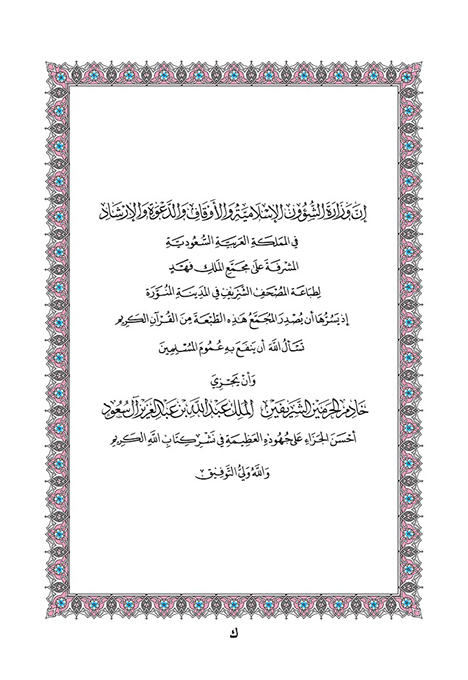 إن وزارة الشؤون الإسلامية والأوقاف والدعوة والإرشاد
في المملكة العربية السعودية
المشرفة على مجمع الملك فهد
لطباعة المصحف الشريف في المدينة المنورة
إذ يسرها أن يصدر المجمع هذه الطبعة من القرآن الكريم
تسأل الله أن ينفع به عموم المسلمين
وأن يجزي
خادم الحرمين الشريفين الملك عبد الله بن عبد العزيز آل سعود
أحسن الجزاء على جهوده العظيمة في نشر كتاب الله الكريم
والله ولي التوفيق
ك